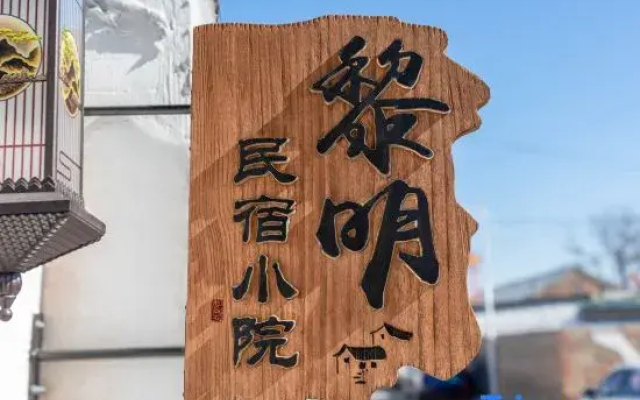 黎明
民宿小院